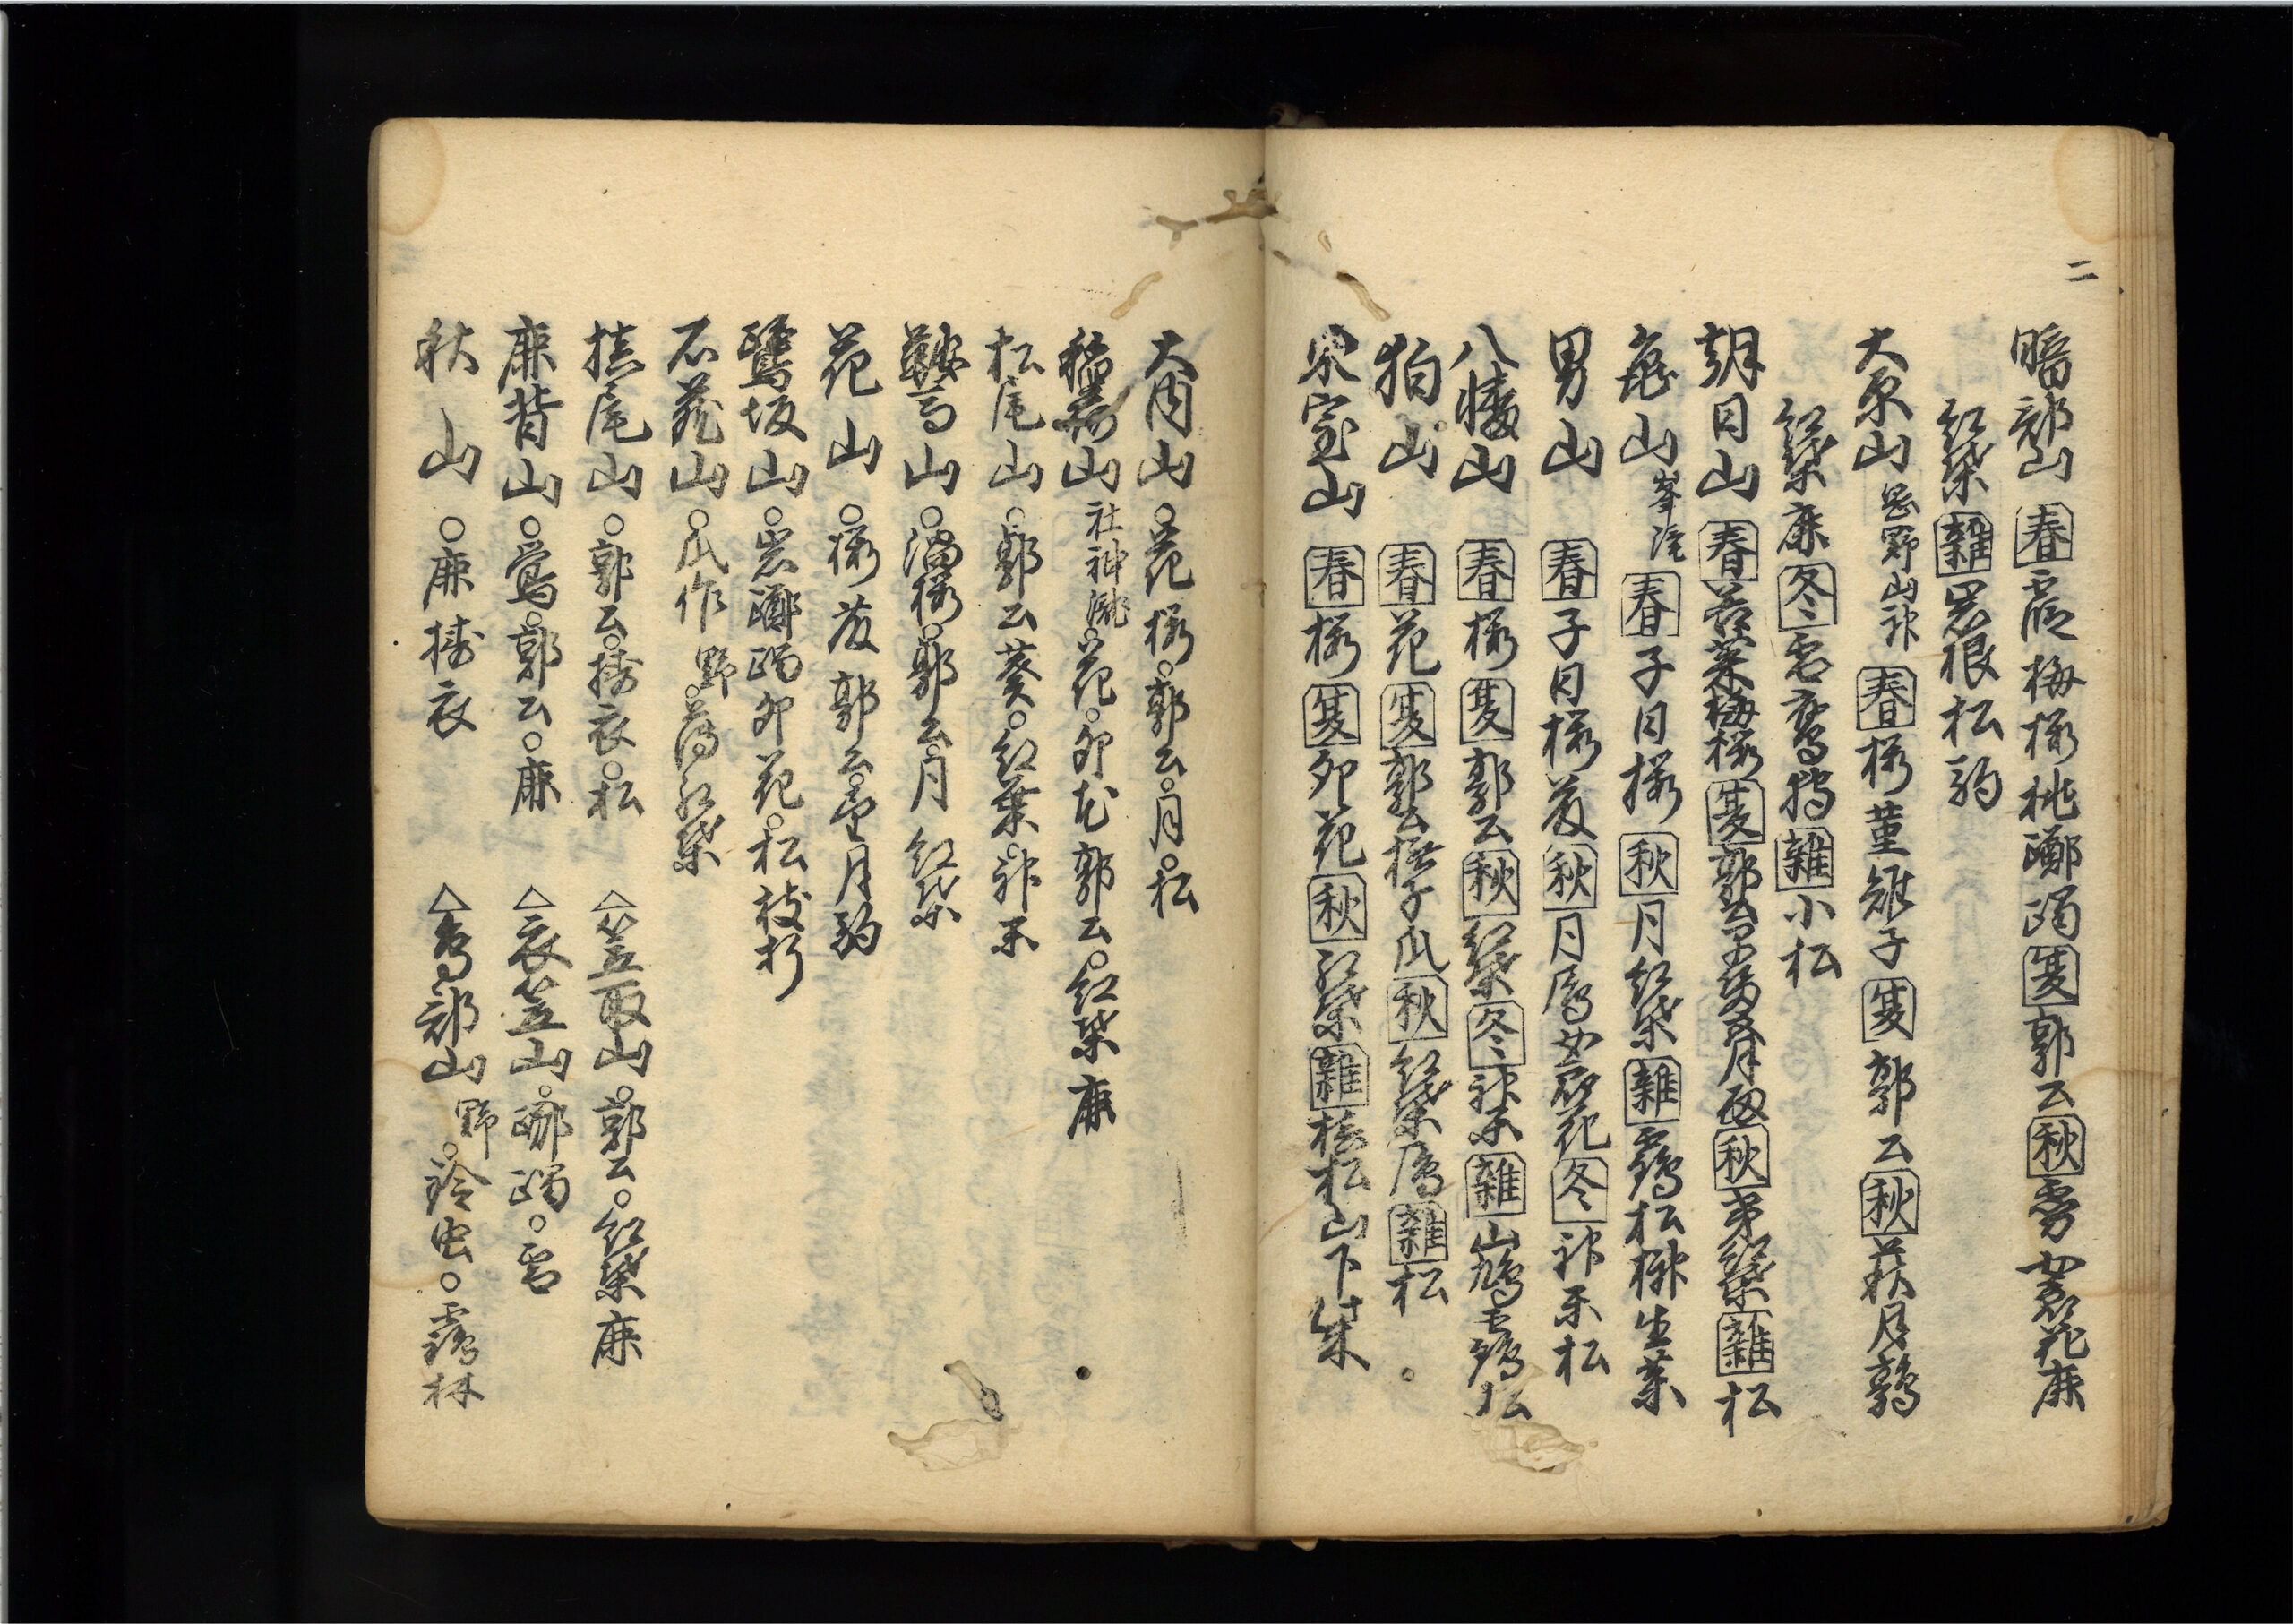 二
暗部山 春 霞 梅 桜 桃 躑躅 夏 郭公 秋 雾 女郎花 鹿
紅葉 雑 岩根松 駒
大原山 野山 春 桜 菫 雉子 夏 郭公 秋 萩 月 鶉
紅葉 鹿 冬 雪 鷹狩 雑 小松
朝日山 春 若菜 梅 桜 夏 郭公 秋 紅葉 雑 松
亀山 峯 滝 春 子日 桜 秋 月 紅葉 雑 鶴 松 榊 生薬
男山 春 子日 桜 藤 秋 月 鴈 女郎花 冬 神楽 松
八幡山 春 桜 夏 郭公 秋 紅葉 冬 神楽 雑 山鳩 鶴 松
狛山 春 花 夏 郭公 撫子 瓜 秋 紅葉 鴈 雑 松
泉山 春 桜 夏 卯花 秋 紅葉 雑 松 山下
大内山 ○花 桜○郭公○月○松
稲荷山 社 神 瀧○花○卯花 郭公○紅葉 鹿
松尾山○郭公 葵○紅葉○神楽
鞍馬山○桜○郭公○月 紅葉
花山 ○桜 藤 郭公○蛍 月 駒
鷺坂山○岩躑躅 卯花○松 枝折
石蔵山○瓜作 野○ 紅葉
槙尾山○郭公○擣衣○松 △笠取山○郭公○紅葉 鹿
鹿背山○鶯○郭公○鹿 △衣笠山○躑躅○雪
秋山 ○鹿 擣衣 △鳥部山 野○鈴虫○鶴林